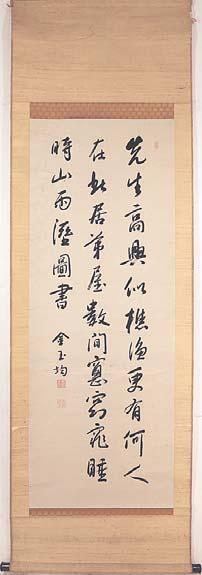 先生高興似樵漁更有何人
在此居茅屋數间窻窈窕睡
時山雨溼圖書
金玉均